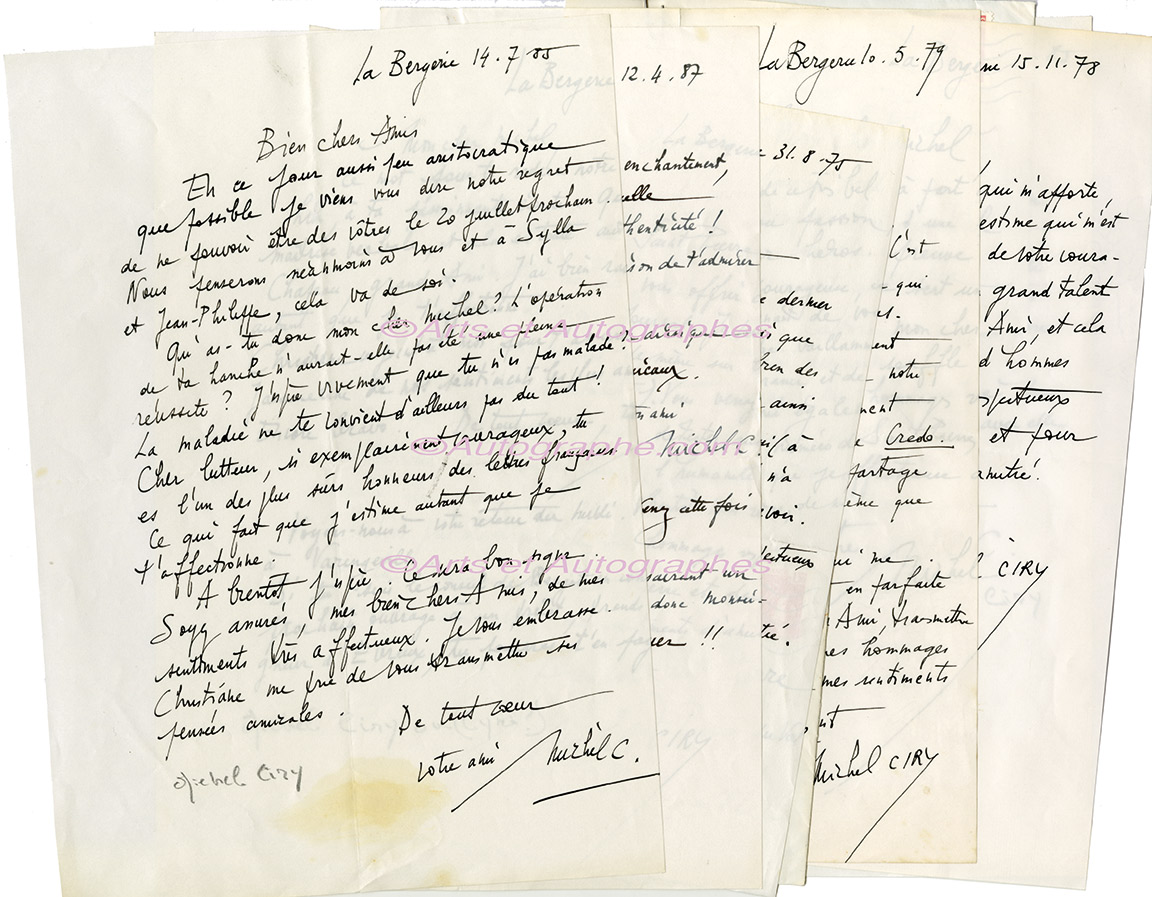 La Bergerie 14.7.85
Bien chers Amis
En ce jour aussi peu aristocratique
que possible je viens vous dire notre regret
de ne pouvoir être des vôtres le 20 juillet prochain.
Nous penserons néanmoins à vous et à Sylla
et Jean-Philippe, cela va de soi.
Qu'as-tu donc mon cher Michel? L'opération
de ta hanche n'aurait-elle pas été une pleine
réussite? J'espère vivement que tu n'es pas malade?
La maladie ne te convient d'ailleurs pas du tout!
Cher lutteur, si exemplairement courageux, tu
es l'un des plus sûrs honneurs des lettres françaises
Ce qui fait que j'estime autant que je
t'affectionne.
A bientôt j'espère. Ce sera bon signe.
Soyez assurés, mes bien chers Amis, de mes
sentiments très affectueux. Je vous embrasse.
Christiane me prie de vous transmettre ses
pensées amicales.
De tout cœur
votre ami Michel C.
Michel Ciry
12.4.87
enchantement,
elle
thenticité!
son de t'admirer
icaux.
ami
Michel C.
cette fois
un
donc
!!
La Bergerie 10.5.79
31.8.75
dernier
que
bien des
ainsi
à
n'a
voir.
C'est
qui
notre
Credo.
partage
même que
qui me
en parfaite
Ami, transmettre
mes hommages
mes sentiments
Michel CIRY
15.11.78
qui m'apporte,
estime qui m'est
de votre coura-
grand talent
Ami et cela
d hommes
et pour
amitié.
CIRY
©Arts et Autographes
©Autographe.com
©Arts et Autographes